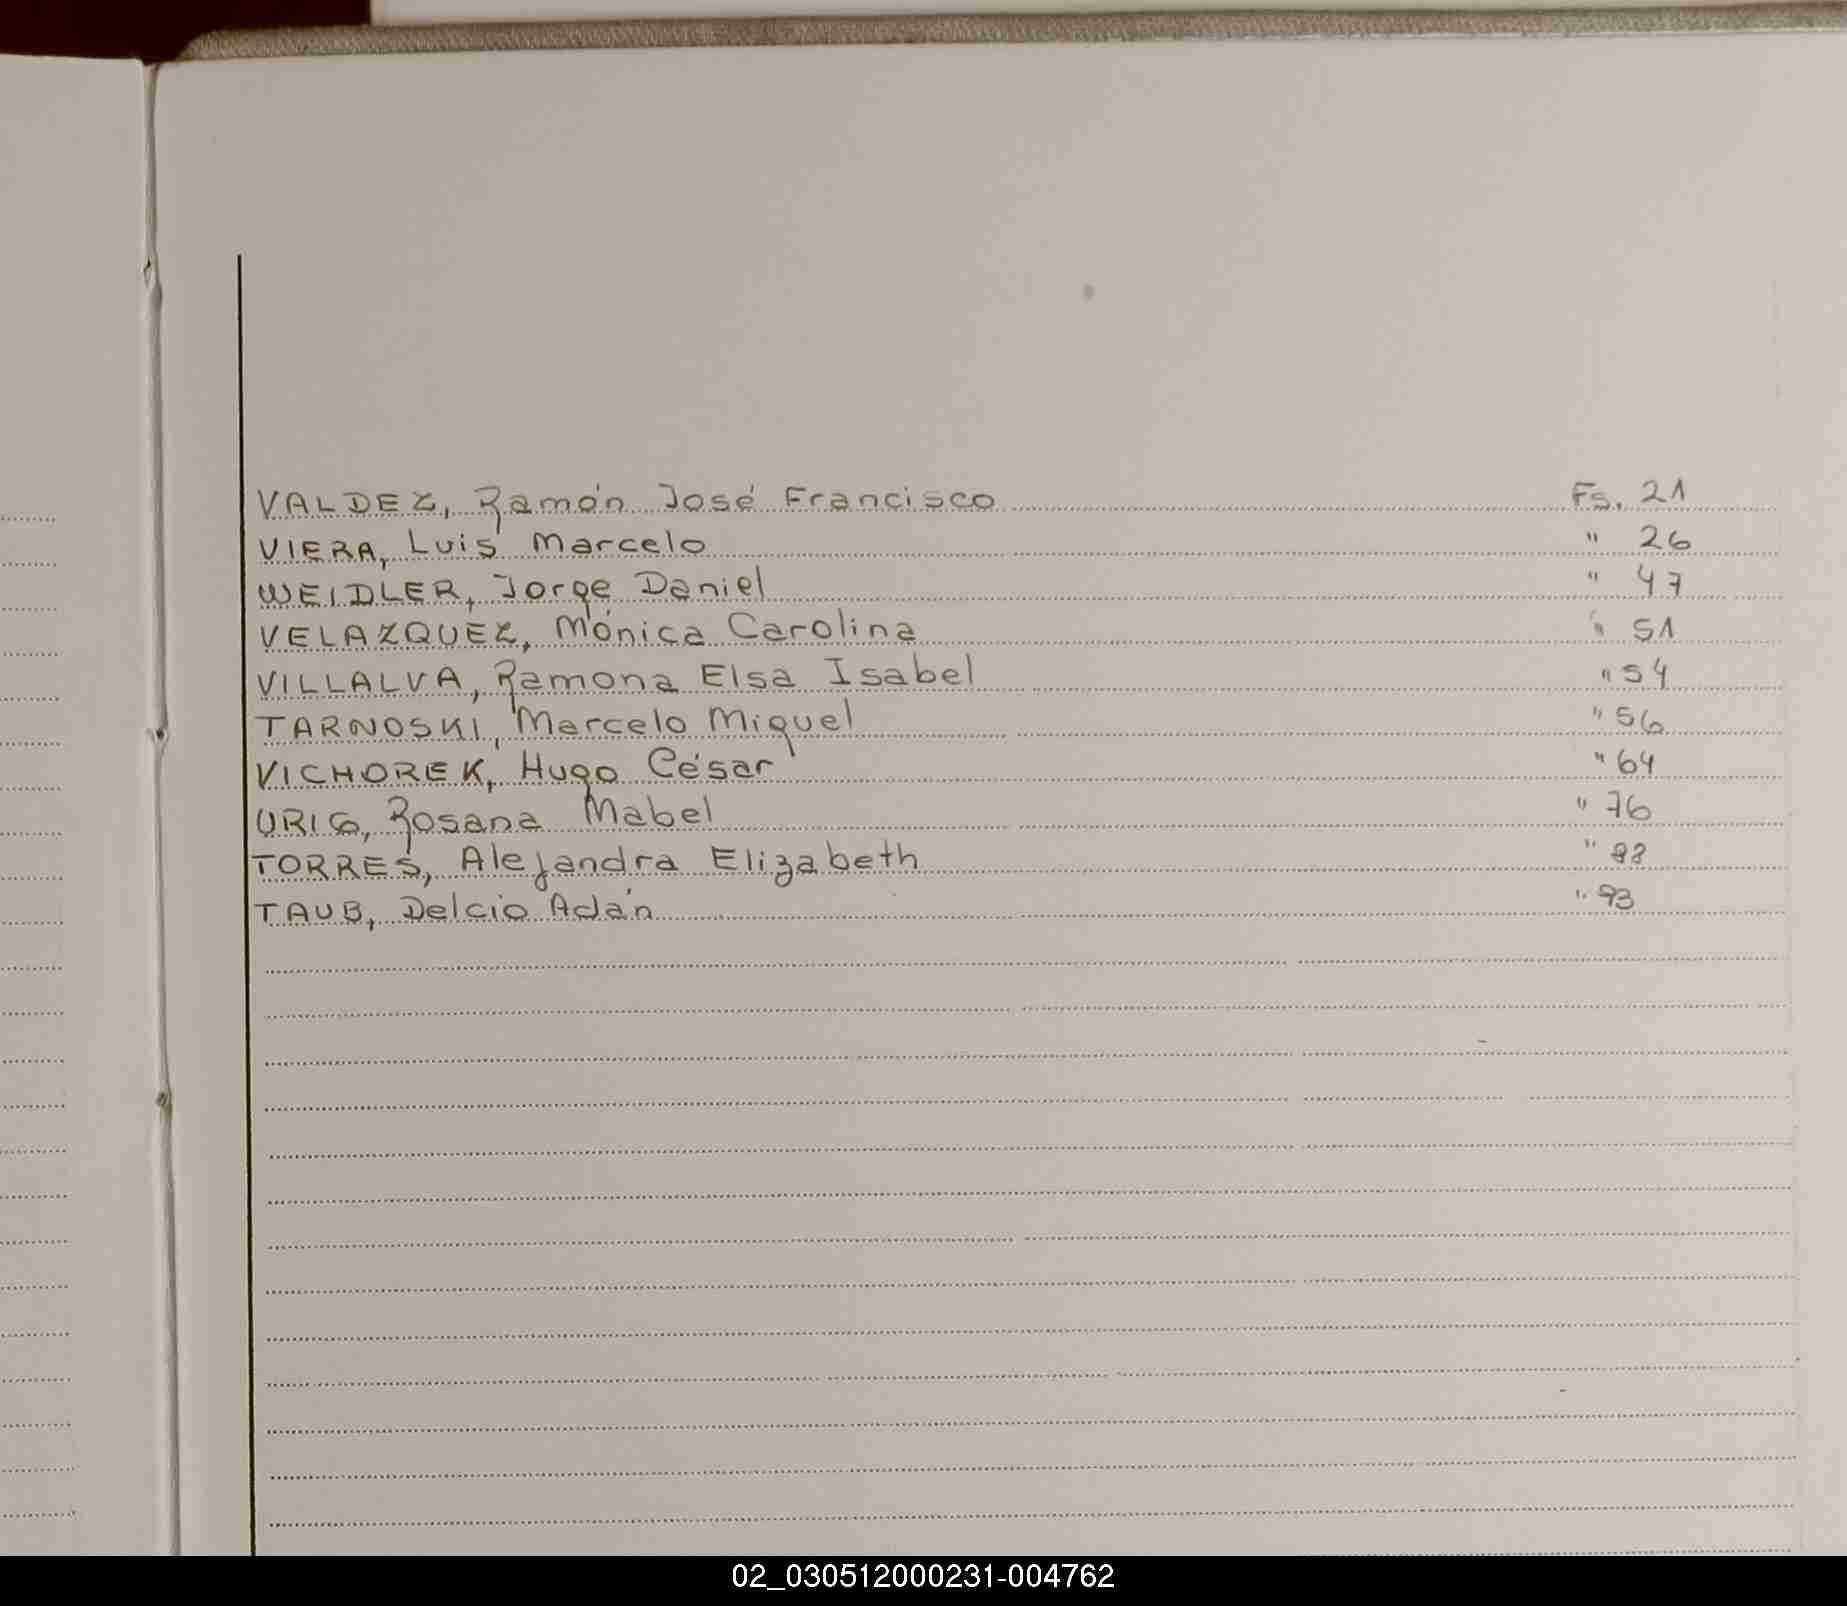 VALDEZ, Ramón José Francisco Fs. 21
VIERA, Luis Marcelo " 26
WEIDLER, Jorge Daniel " 47
VELAZQUEZ, Mónica Carolina " 51
VILLALVA, Ramona Elsa Isabel " 54
TARNOSKI, Marcelo Miguel " 56
VICHOREK, Hugo César " 64
URIG, Rosana Mabel " 76
TORRES, Alejandra Elizabeth "
TAUB, Delcio Adán " 93
02_030512000231-004762